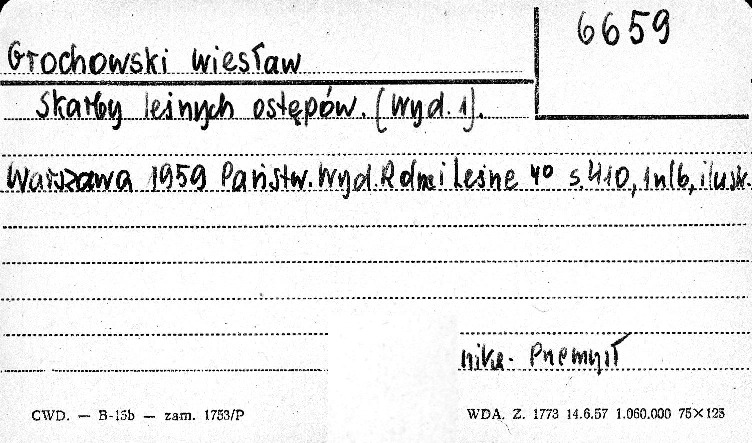 6659
Grochowski Wiesław
Skarby leśnych ostępów. (Wyd. 1).
Warszawa 1959 Państw. Wyd. Roln i Leśne 4° s. 410, 1nlb, ilustr.
Przemysł
CWD. — B-15b — zam. 1753/P
WDA. Z. 1773 14.6.57 1.060.000 75×125